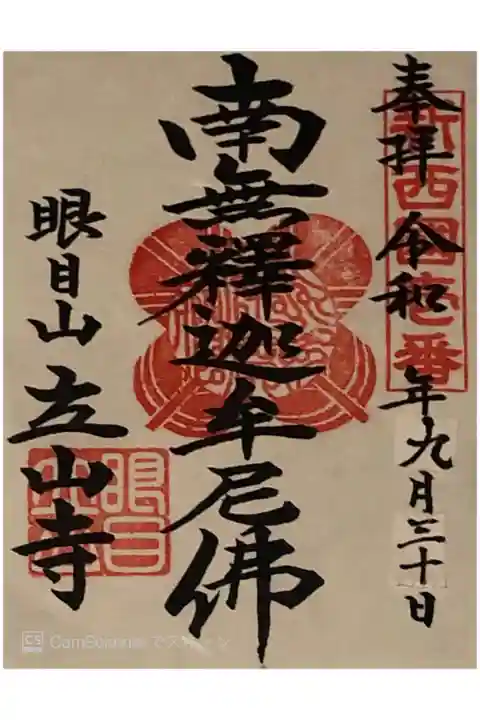 奉拝 令和 年九月三十日
新西國壱番
南無釋迦牟尼佛
眼目山 立山寺
眼目
CS CamScanner でスキャン